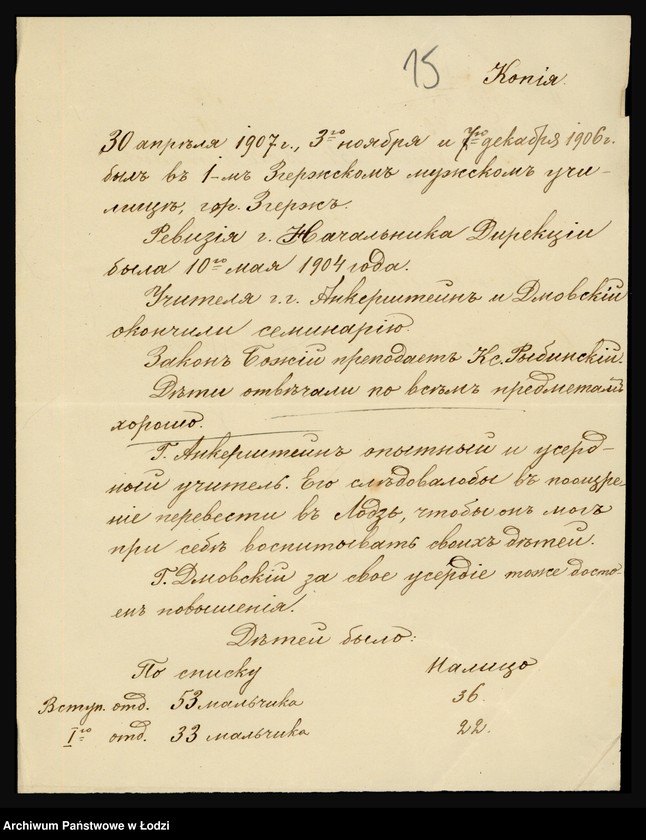 15
Копія.
30 апрѣля 1907 г., 3го ноября и 7го декабря 1906 г.
былъ въ 1-мъ Згержскомъ мужскомъ учи-
лищѣ, гор. Згержъ.
Ревизія г. Начальника Дирекціи
была 10го мая 1904 года.
Учителя г.г. Анкерштейнъ и Дмовскій
окончили семинарію.
Законъ Божій преподаетъ Кс. Рыбинскій.
Дѣти отвѣчали по всѣмъ предметамъ
хорошо.
Г. Анкерштейнъ опытный и усерд-
ный учитель. Его слѣдовалобы въ поощре-
ніе перевести въ Лодзь, чтобы онъ могъ
при себѣ воспитывать своихъ дѣтей.
Г. Дмовскій за свое усердіе тоже досто-
енъ повышенія.
Дѣтей было:
По списку Налицо
Вступ. отд. 53 мальчика 36.
Iго отд. 33 мальчика 22.
Archiwum Państwowe w Łodzi